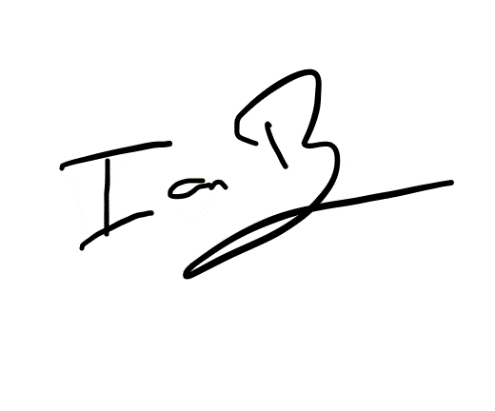 Ian B